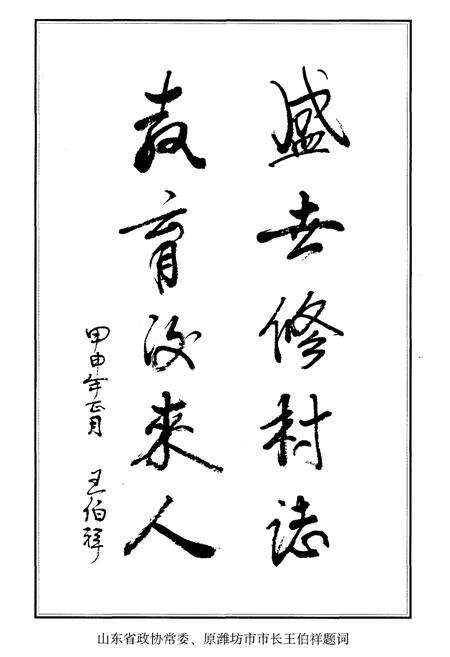 盛世修村誌
教育後來人
甲申年正月 王伯祥
山东省政协常委、原潍坊市市长王伯祥题词